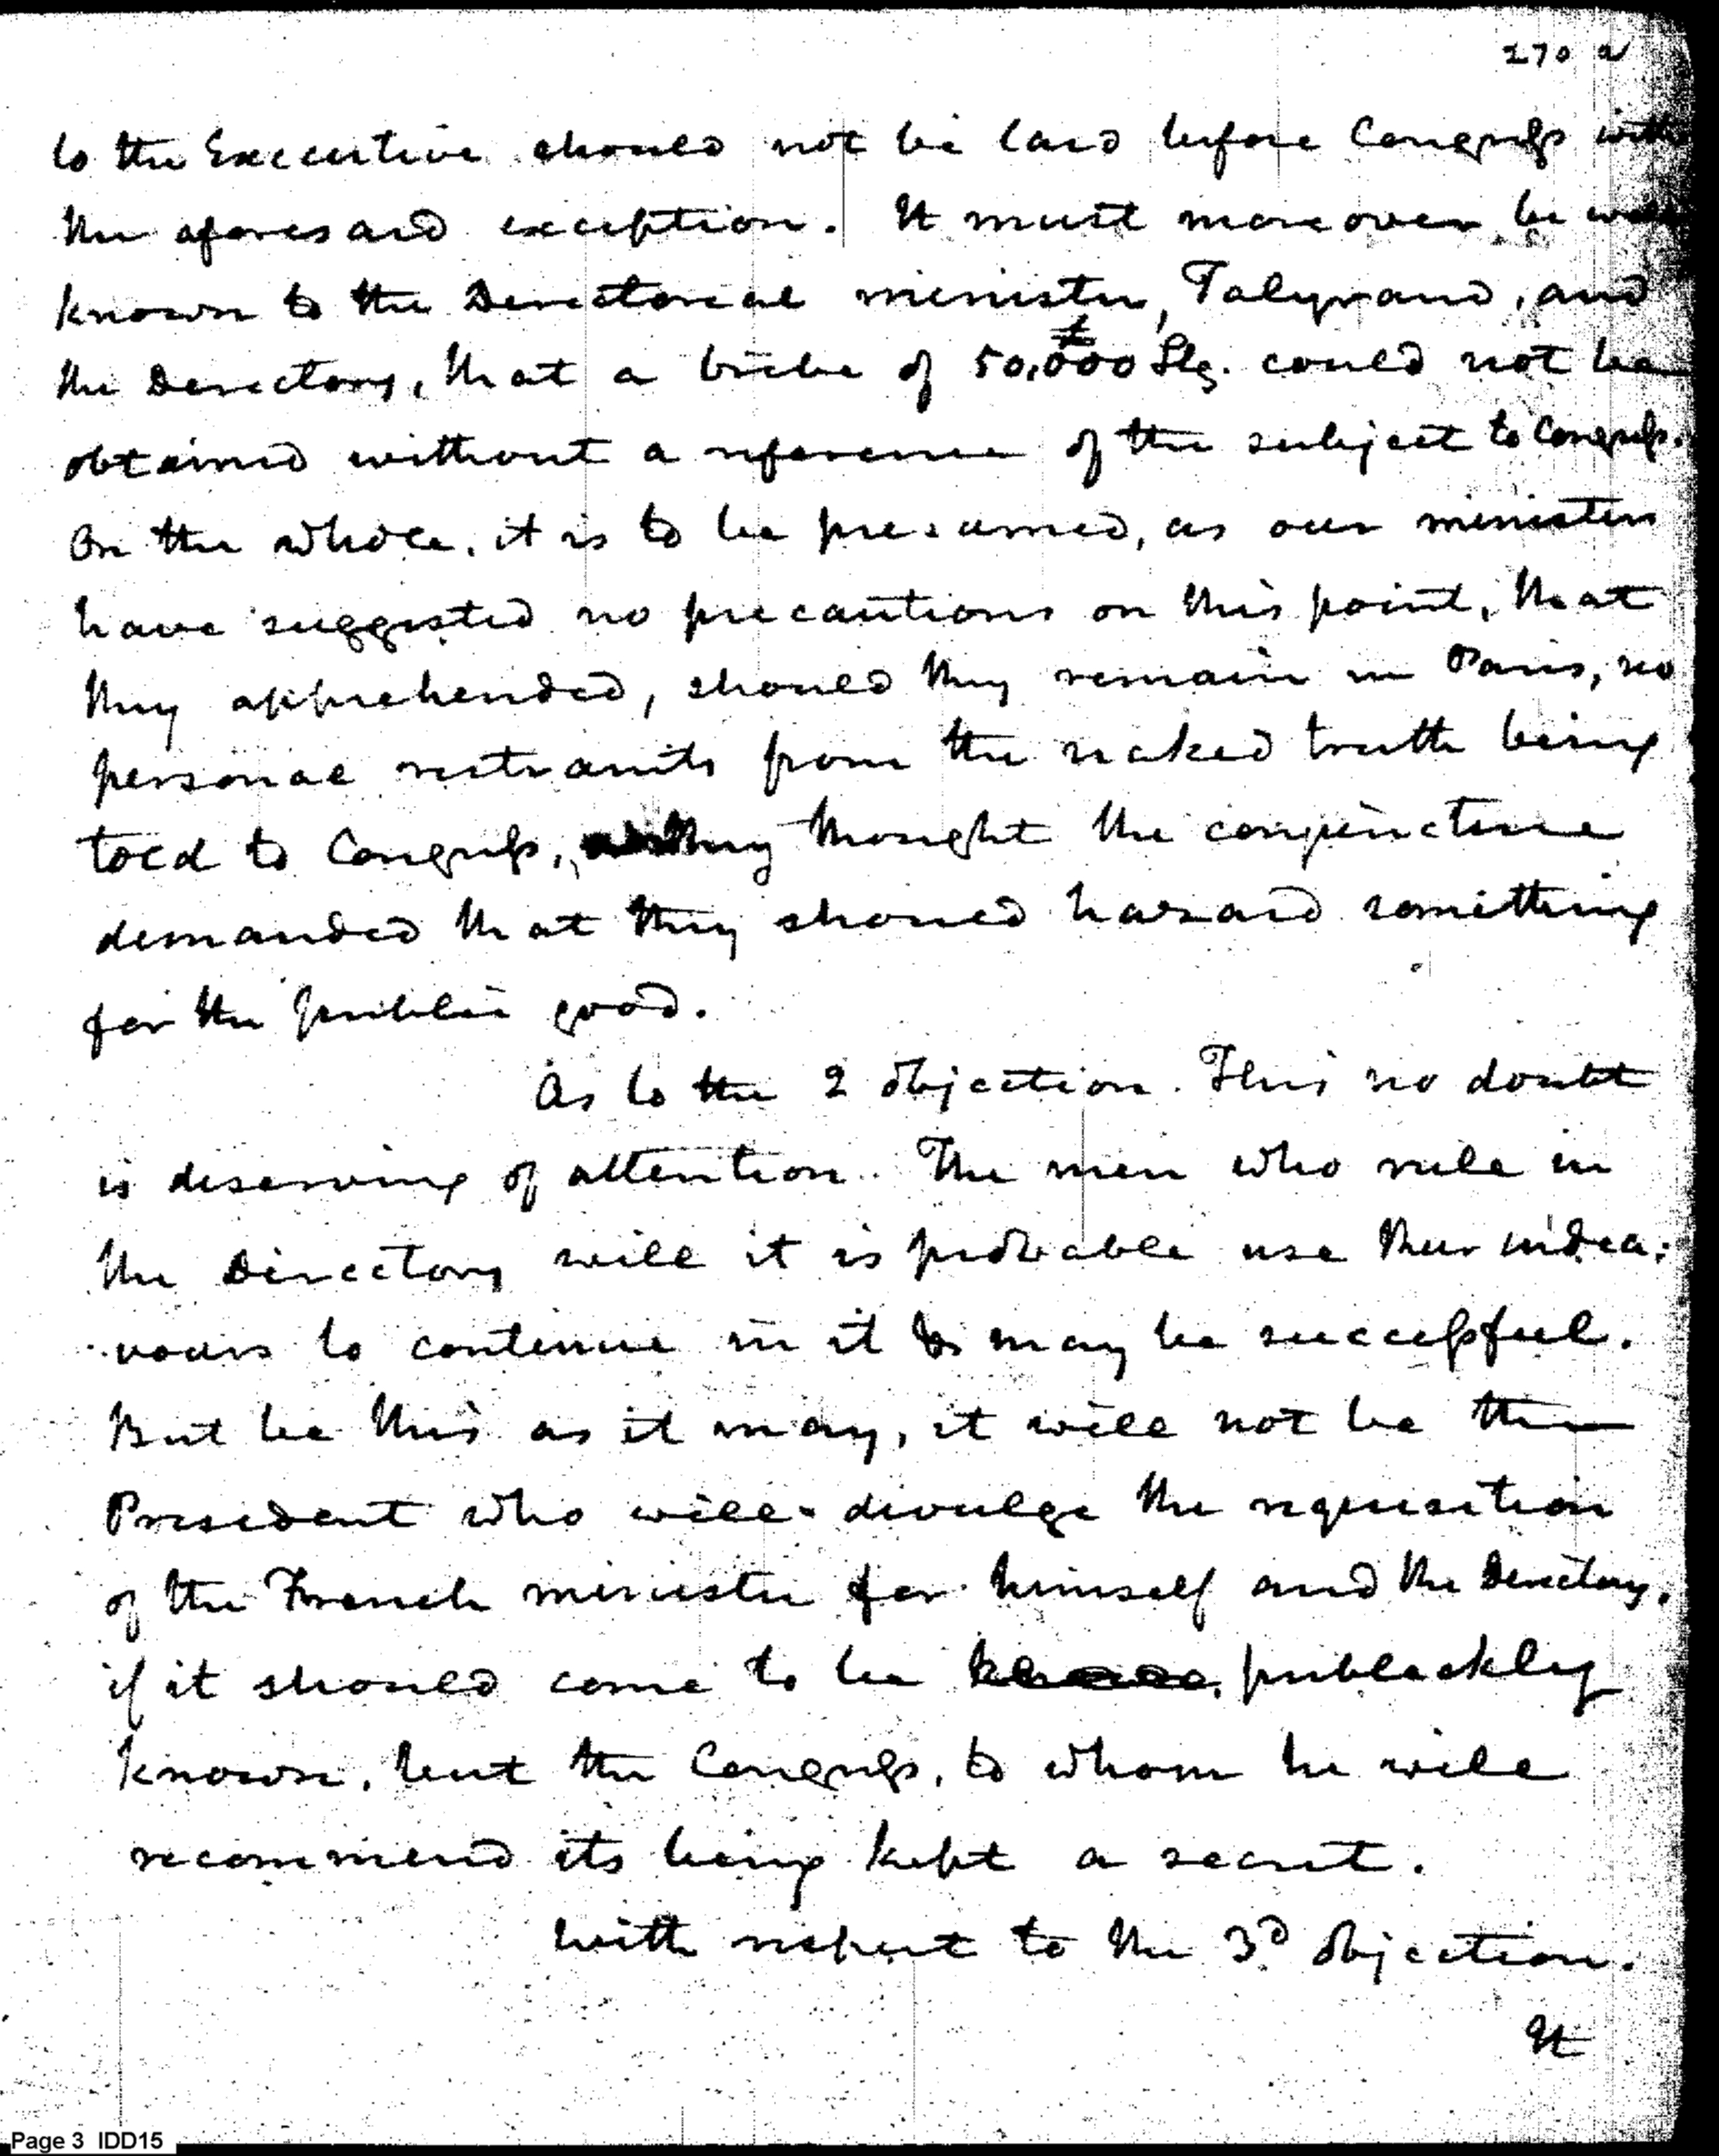 270 a
to the Executive should not be laid before Congress with
the aforesaid exception. It must moreover be well
known to the Directorial minister, Talyrand, and
the Directory, that a bribe of 50,000 £ Stg. could not be
obtained without a reference of the subject to Congress.
On the whole, it is to be presumed, as our ministers
have suggested no precautions on this point, that
they apprehended, should they remain in Paris, no
personal restraints from the naked truth being
told to Congress, they thought the conjuncture
demanded that they should hazard something
for the public good.
As to the 2 objection. This no doubt
is deserving of attention. The men who rule in
the Directory will it is probable use their indea:
vours to continue in it & may be successful.
But be this as it may, it will not be the
President who will divulge the requisition
of the French minister for himself and the Directory,
if it should come to be publickly
known, but the Congress, to whom he will
recommend its being kept a secret.
With respect to the 3d objection.
It
Page 3 IDD15